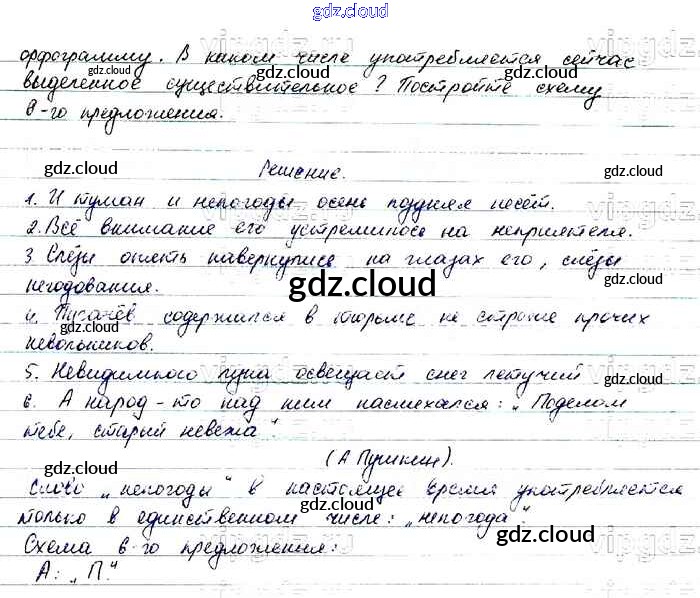 gdz.cloud
орфограмму. В каком числе употребляется сейчас
выделенное существительное? Постройте схему
6-го предложения.
Решение.
1. И туман и непогоды осень поздняя несёт.
2. Всё внимание его устремилось на неприятеля.
3. Слёзы опять навернулись на глазах его, слёзы
негодования.
4. Пугачёв содержился в тюрьме не строже прочих
невольников.
5. Невидимкою луна освещает снег летучий
6. А народ-то над ним насмехался: „Поделом
тебе, старый невежа".
(А Пушкин).
Слово „непогоды" в настоящее время употребляется
только в единственном числе: „непогода".
Схема 6-го предложения:
А: „П."